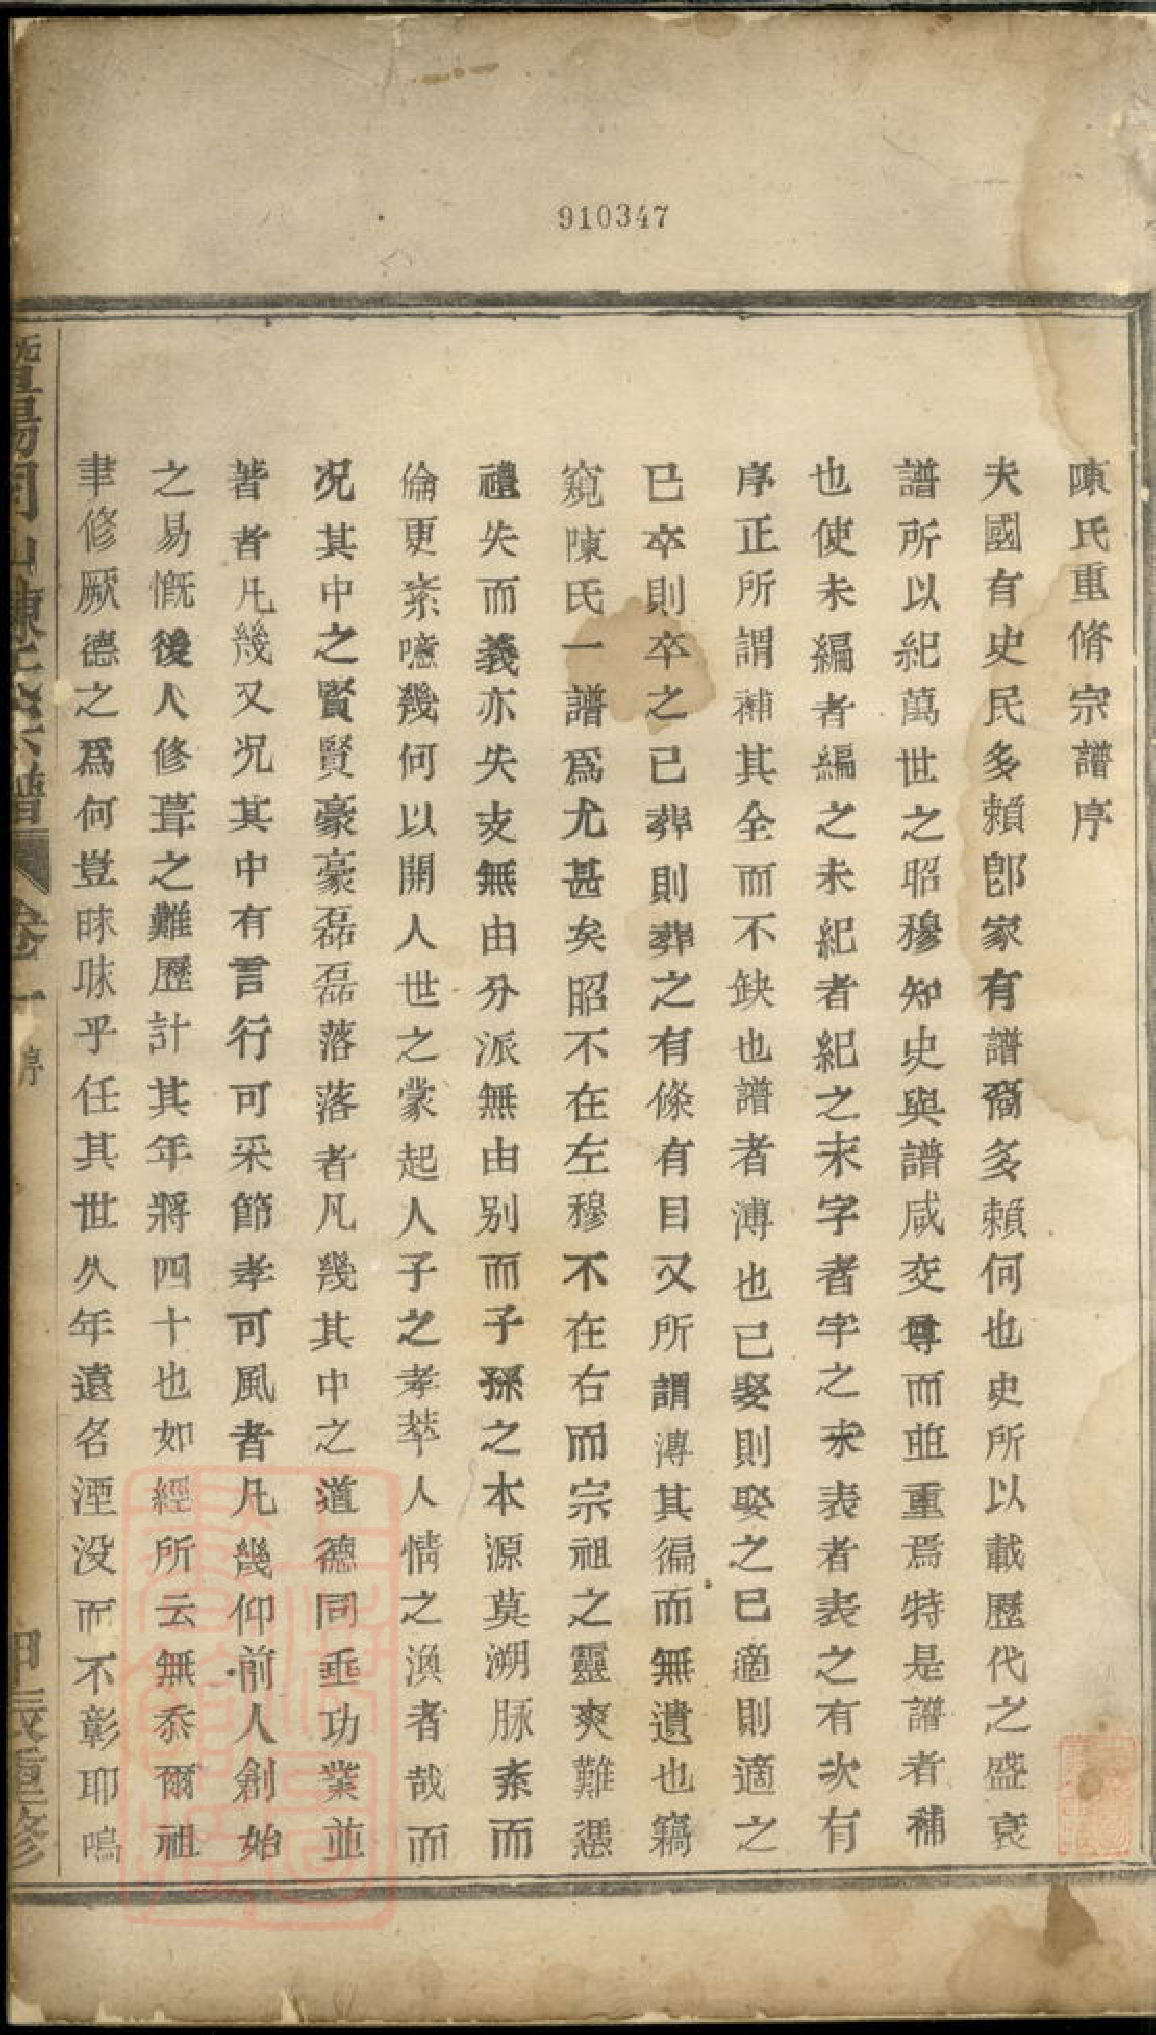 910347
陳氏重脩宗譜序
夫國有史民多賴卽家有譜裔多賴何也史所以載歷代之盛衰
譜所以紀萬世之昭穆知史與譜咸交尊而並重焉特是譜者補
也使未編者編之未紀者紀之未字者字之未表者表之有次有
序正所謂補其全而不缺也譜者溥也已娶則娶之已適則適之
已卒則卒之已葬則葬之有條有目又所謂溥其徧而無遺也竊
窺陳氏一譜爲尤甚矣昭不在左穆不在右而宗祖之靈爽難憑
禮失而義亦失支無由分派無由别而子孫之本源莫溯脉紊而
倫更紊噫幾何以開人世之蒙起人子之孝萃人情之渙者哉而
况其中之賢賢豪豪磊磊落落者凡幾其中之道德同垂功業並
著者凡幾又况其中有言行可采節孝可風者凡幾仰前人創始
之易慨後人修葺之難歷計其年將四十也如經所云無忝爾祖
聿修厥德之爲何豈昧昧乎任其世久年遠名湮没而不彰耶嗚
暨陽同山陳氏宗譜 卷一 序 甲辰重修